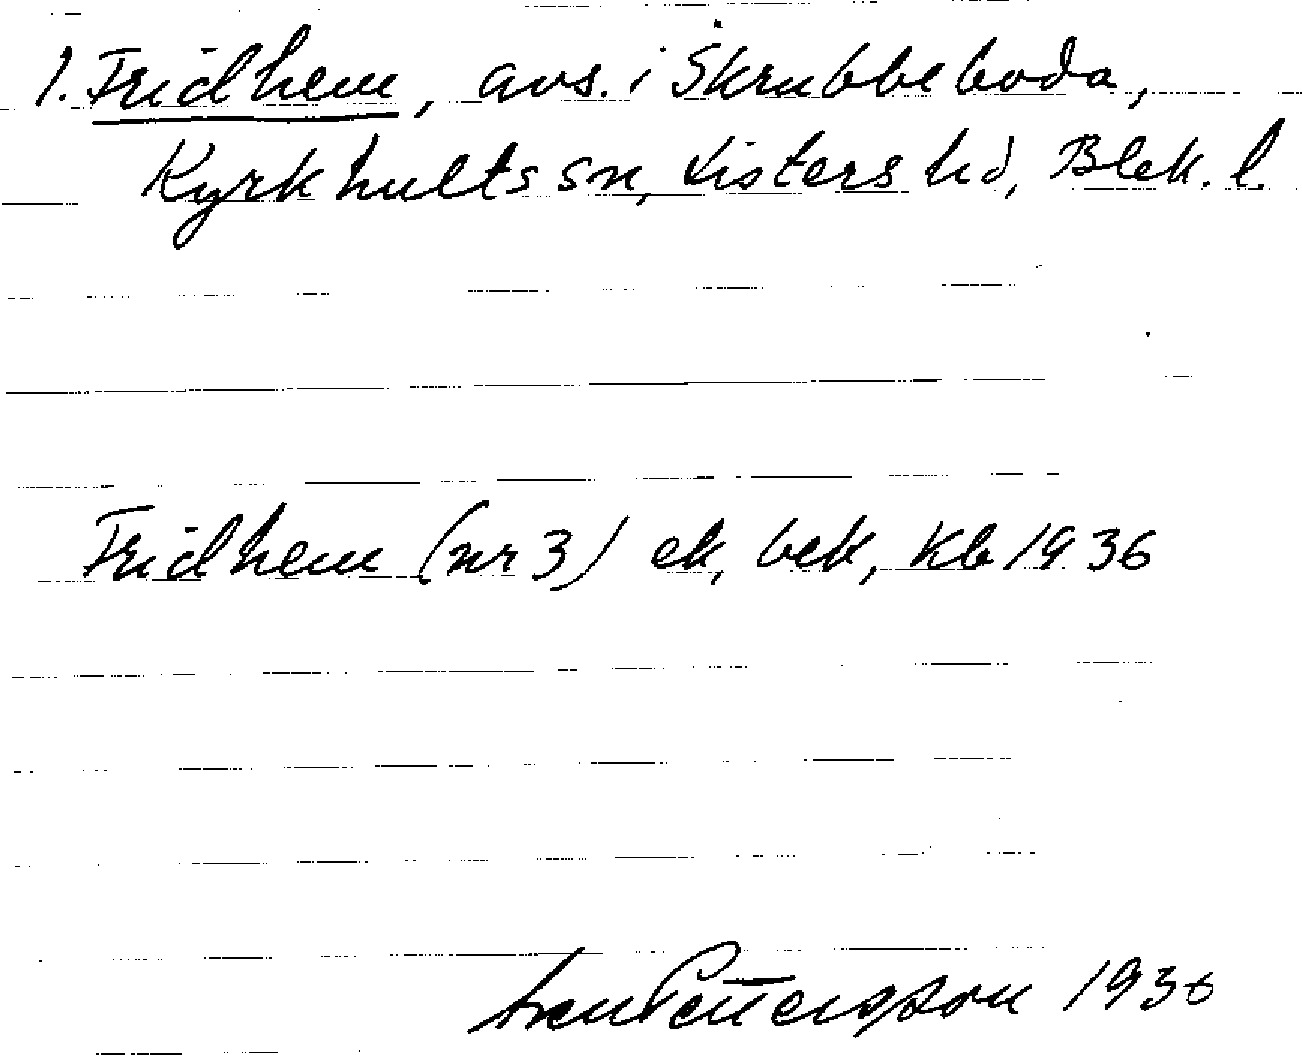 1. Fridhem, avs. i Skrubbeboda,
Kyrkhults sn, Listers hd, Blek. l.
Fridhem (nr 3) ek, bek, Kb 1936
Sven Pettersson 1936